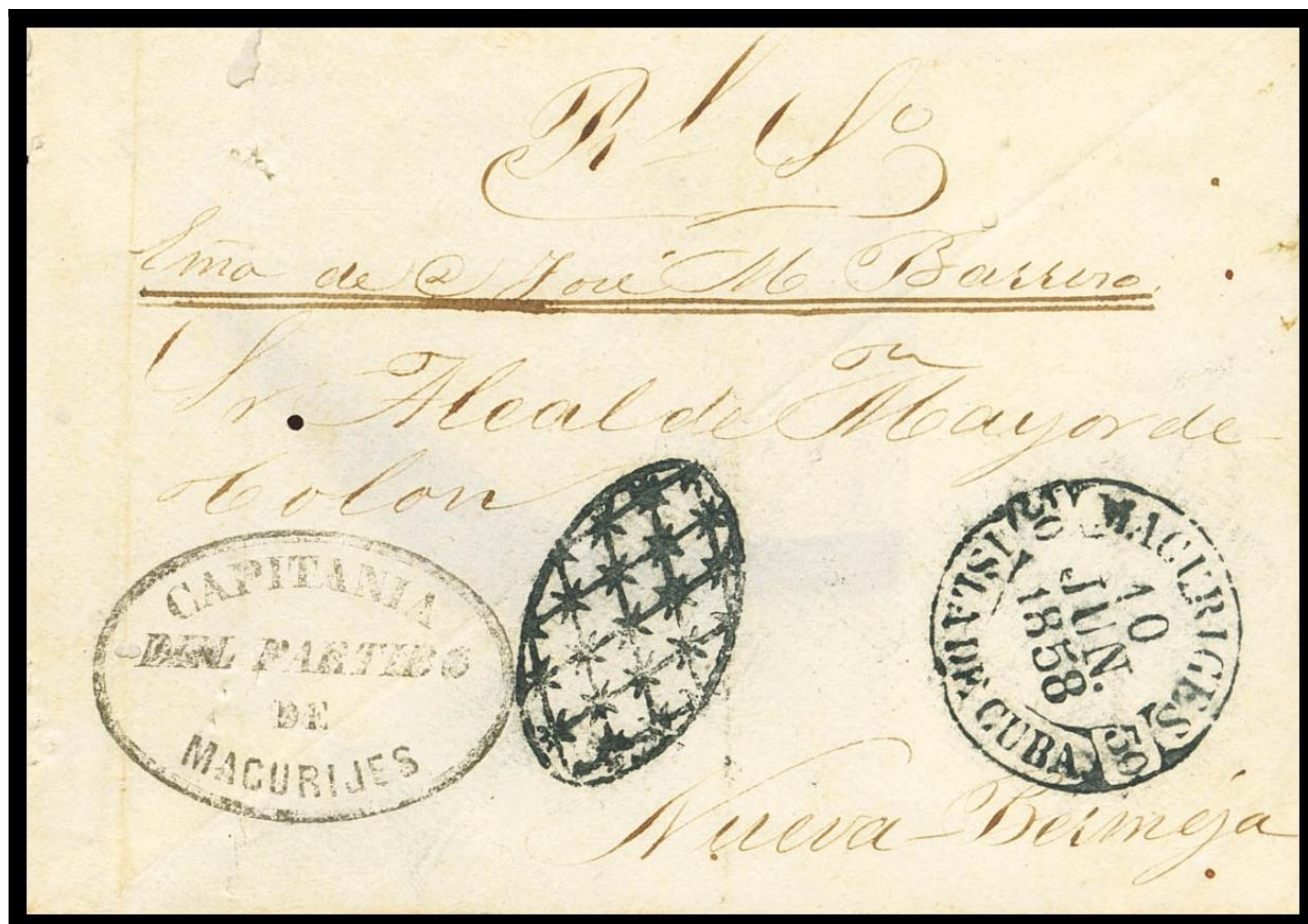 Rl So
Ema de D José M Barrero
Sr Alcalde Mayor de
Colon
CAPITANIA
DEL PARTIDO
DE
MACURIJES
MACURIGES
10
JUN.
1858
ISLA DE CUBA
Nueva-Bermeja